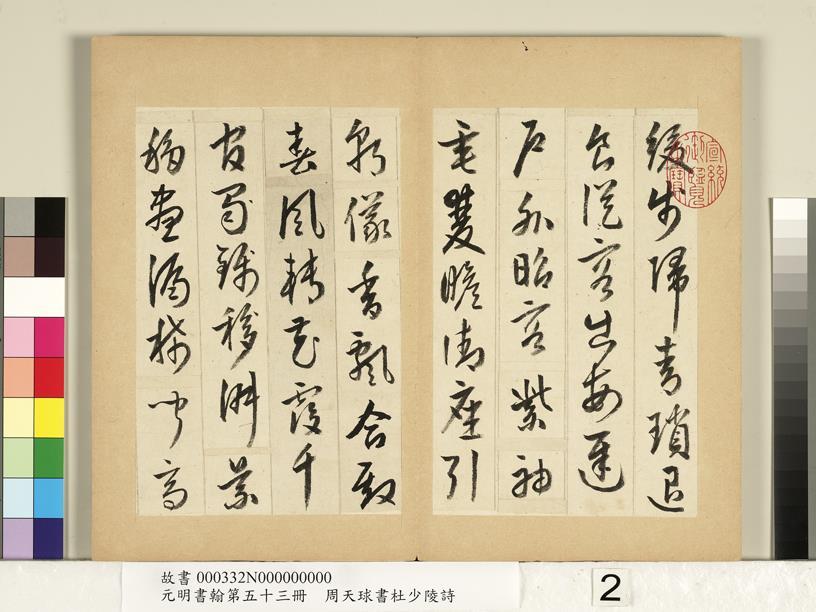 緩步歸青瑣退
食從容出每遲
戶外昭容紫袖
垂雙瞻御座引
朝儀香飄合殿
春風轉花覆千
官 淑景
移晝漏稀聞高
宣統御覽之寶
故書 000332N000000000
元明書翰第五十三冊　周天球書杜少陵詩
2